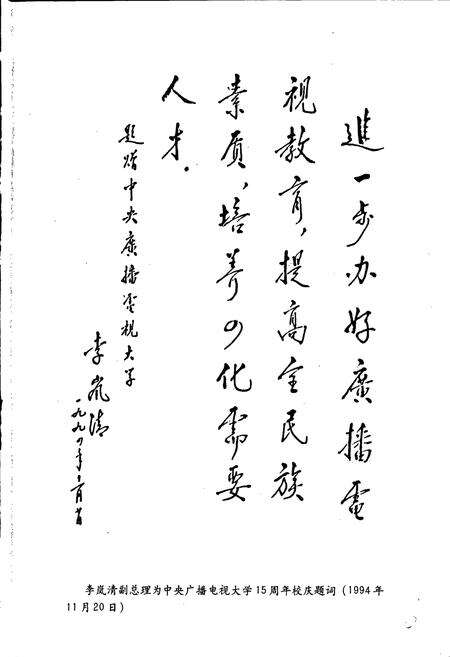 進一步办好廣播電
视教育，提高全民族
素质，培养四化需要
人才．
题赠中央廣播電视大学
李岚清
一九九四年十一月廿日
李岚清副总理为中央广播电视大学15周年校庆题词（1994年
11月20日）